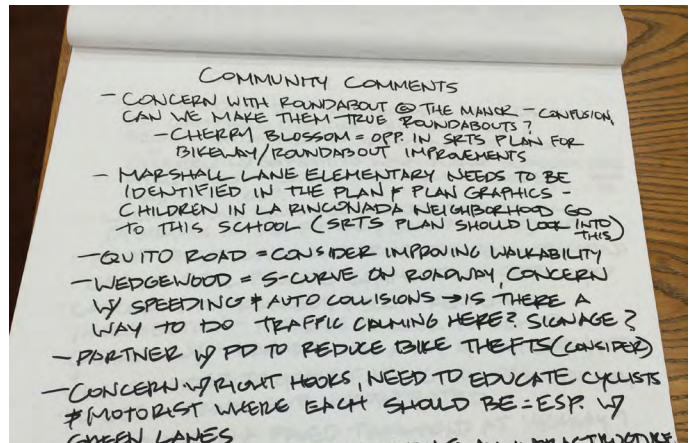 COMMUNITY COMMENTS
- CONCERN WITH ROUNDABOUT @ THE MANOR - CONFUSION,
CAN WE MAKE THEM TRUE ROUNDABOUTS?
- CHERRY BLOSSOM = OPP. IN SRTS PLAN FOR
BIKEWAY/ROUNDABOUT IMPROVEMENTS
- MARSHALL LANE ELEMENTARY NEEDS TO BE
IDENTIFIED IN THE PLAN & PLAN GRAPHICS -
CHILDREN IN LA RINCONADA NEIGHBORHOOD GO
TO THIS SCHOOL (SRTS PLAN SHOULD LOOK INTO
THIS)
- QUITO ROAD = CONSIDER IMPROVING WALKABILITY
- WEDGEWOOD = S-CURVE ON ROADWAY, CONCERN
W/ SPEEDING & AUTO COLLISIONS → IS THERE A
WAY TO DO TRAFFIC CALMING HERE? SIGNAGE?
- PARTNER W/ PD TO REDUCE BIKE THEFTS (CONSIDER)
- CONCERN W/ RIGHT HOOKS, NEED TO EDUCATE CYCLISTS
& MOTORIST WHERE EACH SHOULD BE = ESP. W/
GREEN LANES